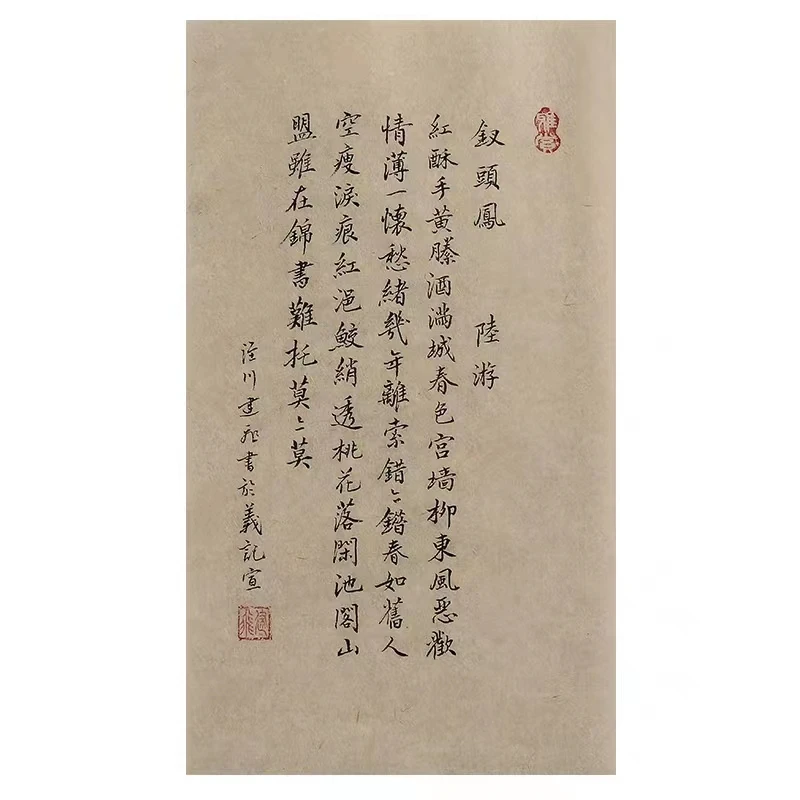 釵頭鳳 陸游
紅酥手黃縢酒滿城春色宮墻柳東風惡歡
情薄一懷愁緒幾年離索錯々錯春如舊人
空瘦淚痕紅浥鮫綃透桃花落閑池閣山
盟雖在錦書難托莫々莫
涇川建飛書於義記宣